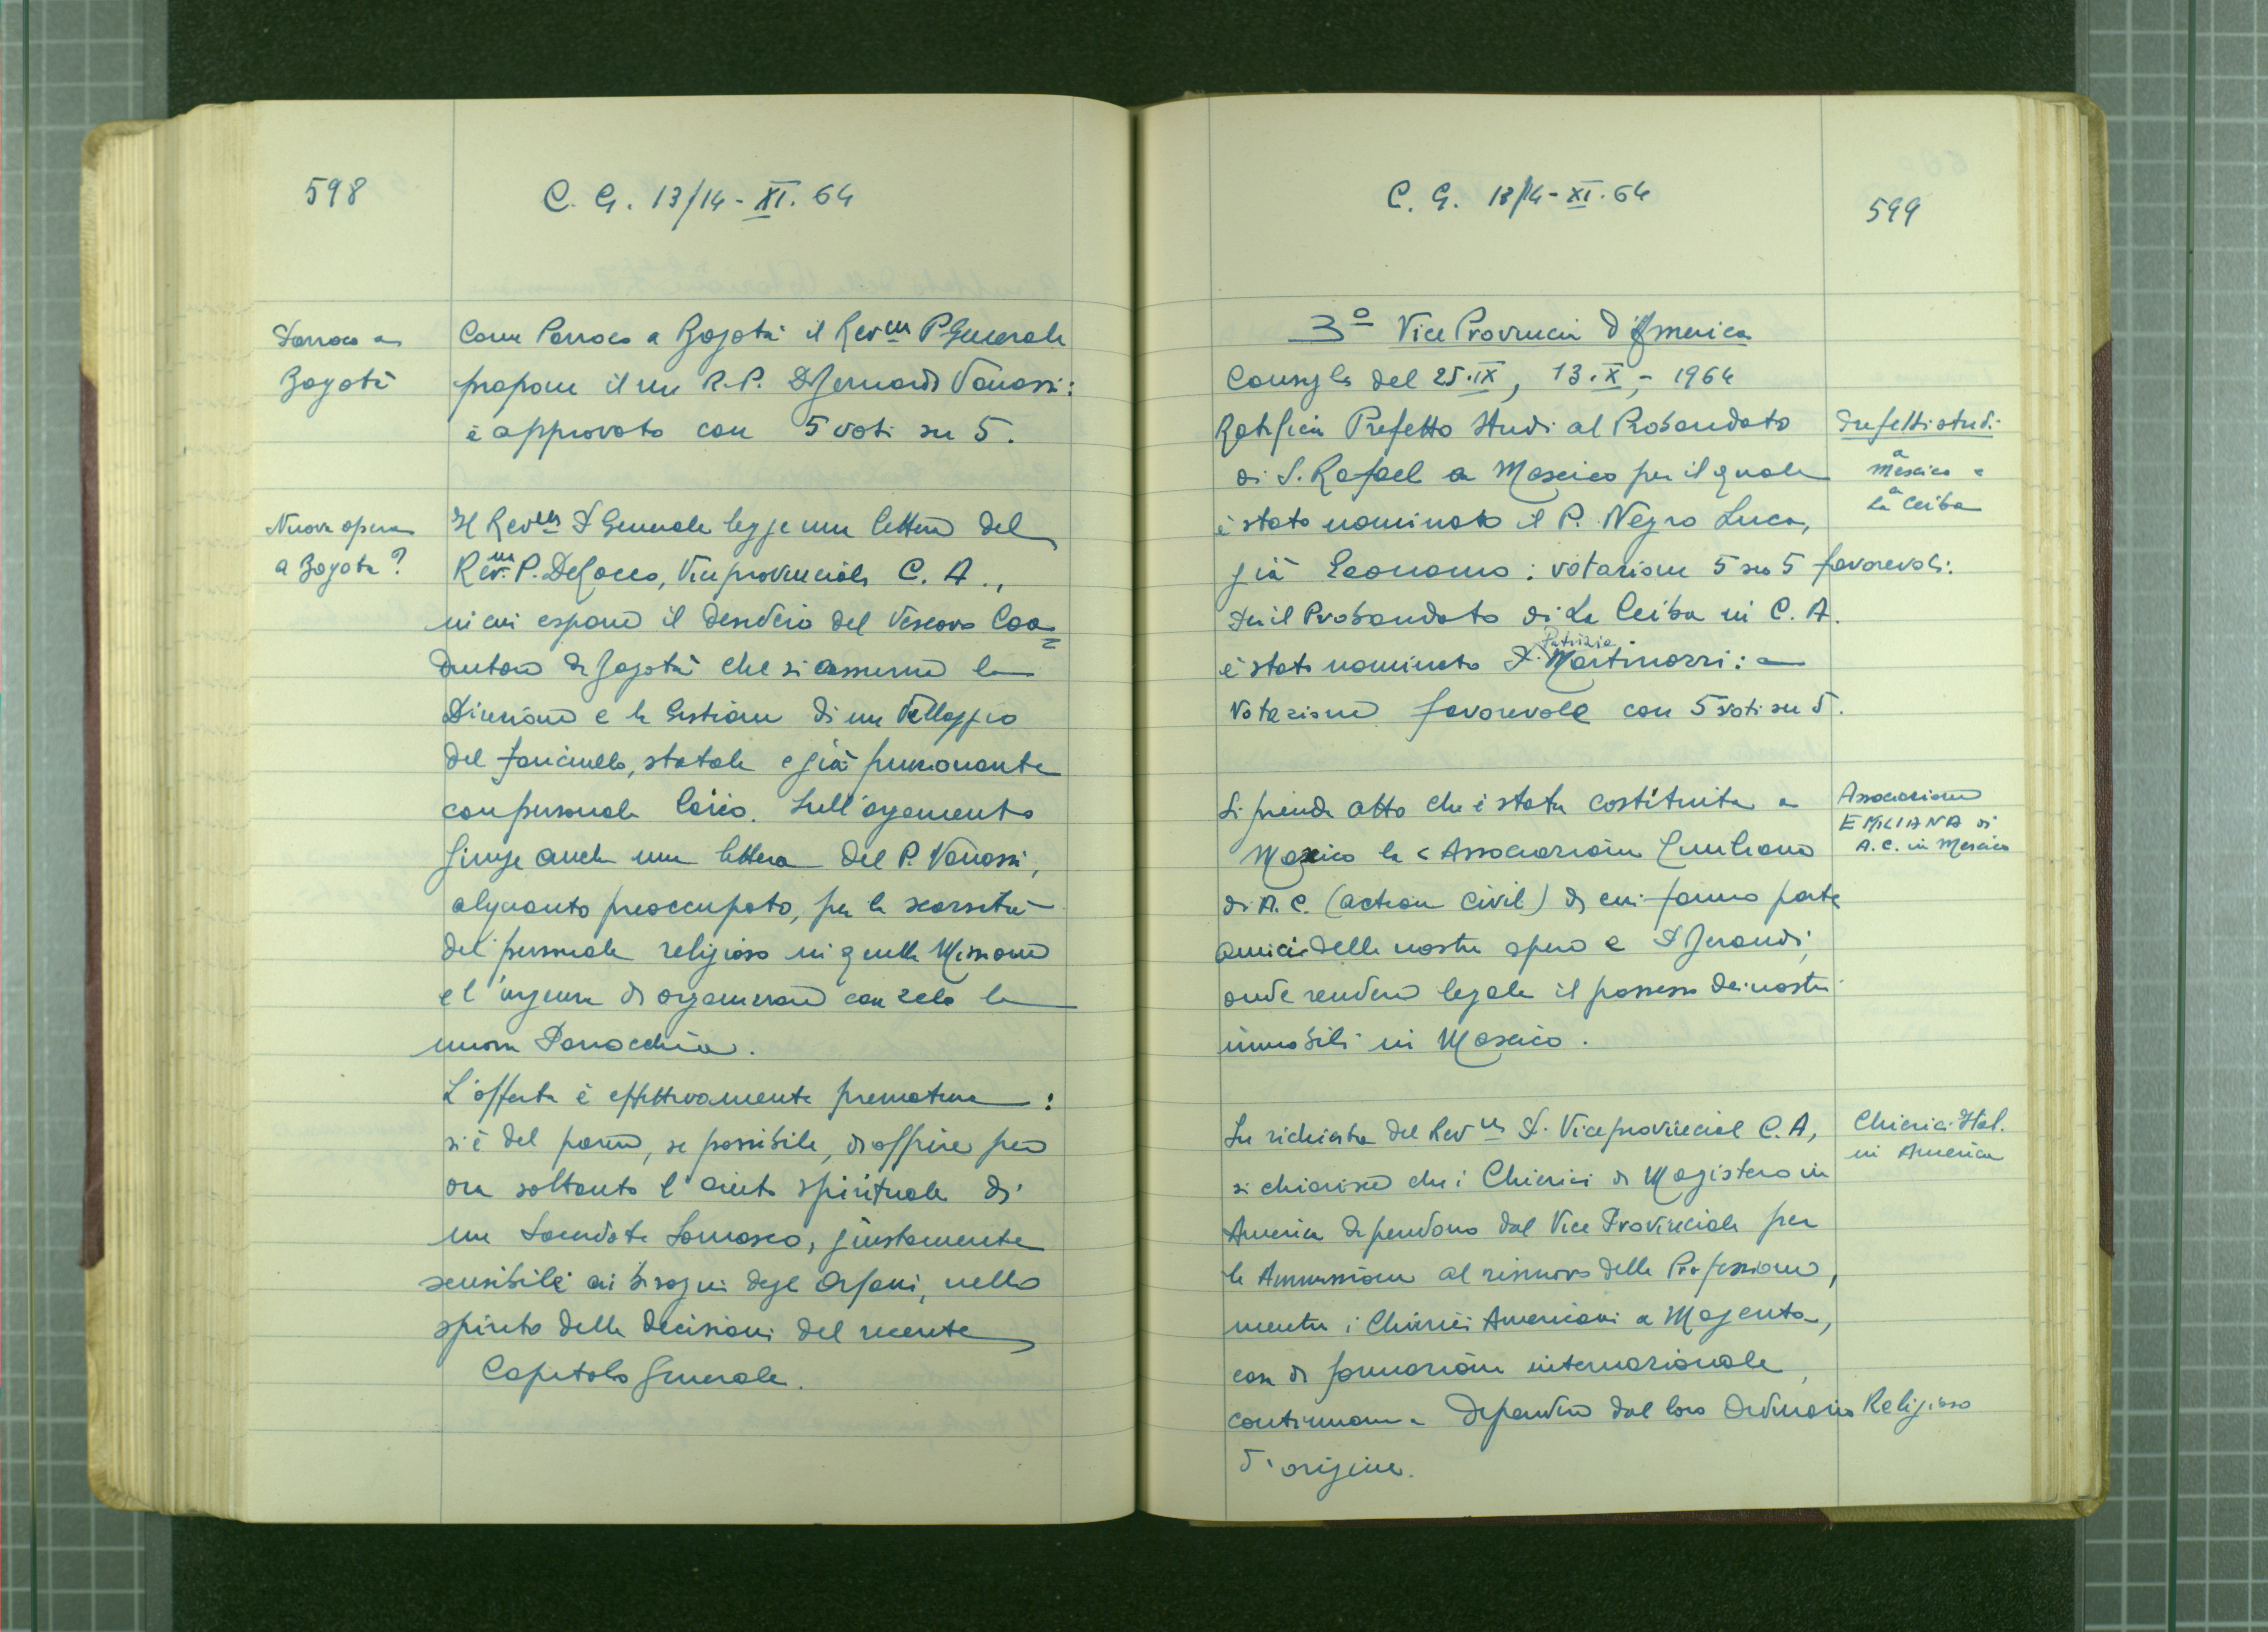 598
C. G. 13/14 - XI. 64
Parroco a
Bogotà
Come Parroco a Bogotà il Rev.mo P. Generale
propone il R. P. Vanossi:
è approvato con 5 voti su 5.
Nuova opera
a Bogotà?
Il Rev.mo P. Generale legge una lettera del
Rev.mo P. De Rocco, Viceprovinciale C. A.,
in cui espone il desiderio del Vescovo Coa=
diutore di Bogotà che si assuma la
Direzione e la Gestione di un Villaggio
del fanciullo, statale e già funzionante
con personale laico. Sull'argomento
giunge anche una lettera del P. Vanossi,
alquanto preoccupato, per la scarsità
del personale religioso in quella Missione
e l'urgenza di organizzare con zelo la
nuova Parrocchia.
L'offerta è effettivamente prematura:
si è del parere, se possibile, di offrire per
ora soltanto l'aiuto spirituale di
un Sacerdote Somasco, giustamente
sensibile ai bisogni degli Orfani, nello
spirito delle decisioni del recente
Capitolo Generale.
C. G. 13/14 - XI. 64
599
3º Vice Provincia d'America
Consigli del 25.IX, 13.X, - 1964
Ratifica Prefetto Studi al Probandato
di S. Rafael a Messico per il quale
è stato nominato il P. Negro Luca,
già Economo: votazione 5 su 5 favorevoli.
Per il Probandato di La Ceiba in C. A.
è stato nominato P. Patrizio Martinozzi:
votazione favorevole con 5 voti su 5.
Prefetti studi
a
Messico e
a
La Ceiba
Si prende atto che è stata costituita a
Mexico la "Associazione Emiliana
di A. C. (action civil) di cui fanno parte
amici delle nostre opere e P. Brandi,
onde rendere legale il possesso dei nostri
immobili in Messico.
Associazione
EMILIANA di
A. C. in Messico
Su richiesta del Rev.mo P. Viceprovincial C. A,
si chiarisce che i Chierici di Magistero in
America dipendono dal Vice Provinciale per
le Ammissioni al rinnovo della Professione,
mentre i Chierici Americani a Magenta,
casa di formazione internazionale,
continuano a dipendere dal loro Ordinario Religioso
d'origine.
Chierici Ital.
in America